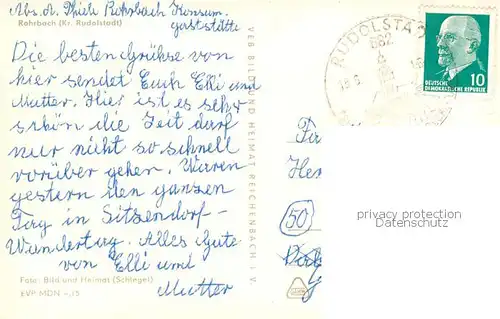 Abs. A. Thiele Rohrbach Konsum-
Rohrbach (Kr. Rudolstadt) gaststätte
Die besten Grüße von
hier sendet Euch Elli und
Mutter. Hier ist es sehr
schön die Zeit darf
nur nicht so schnell
vorüber gehen. Waren
gestern den ganzen
Tag in Sitzendorf-
Wandertag. Alles Gute
von Elli und
Mutter
Foto: Bild und Heimat (Schlegel)
EVP MDN -,15
VEB BILD UND HEIMAT REICHENBACH i. V.
RUDOLSTA
682
DEUTSCHE
DEMOKRATISCHE REPUBLIK
10
Her
50
privacy protection
Datenschutz